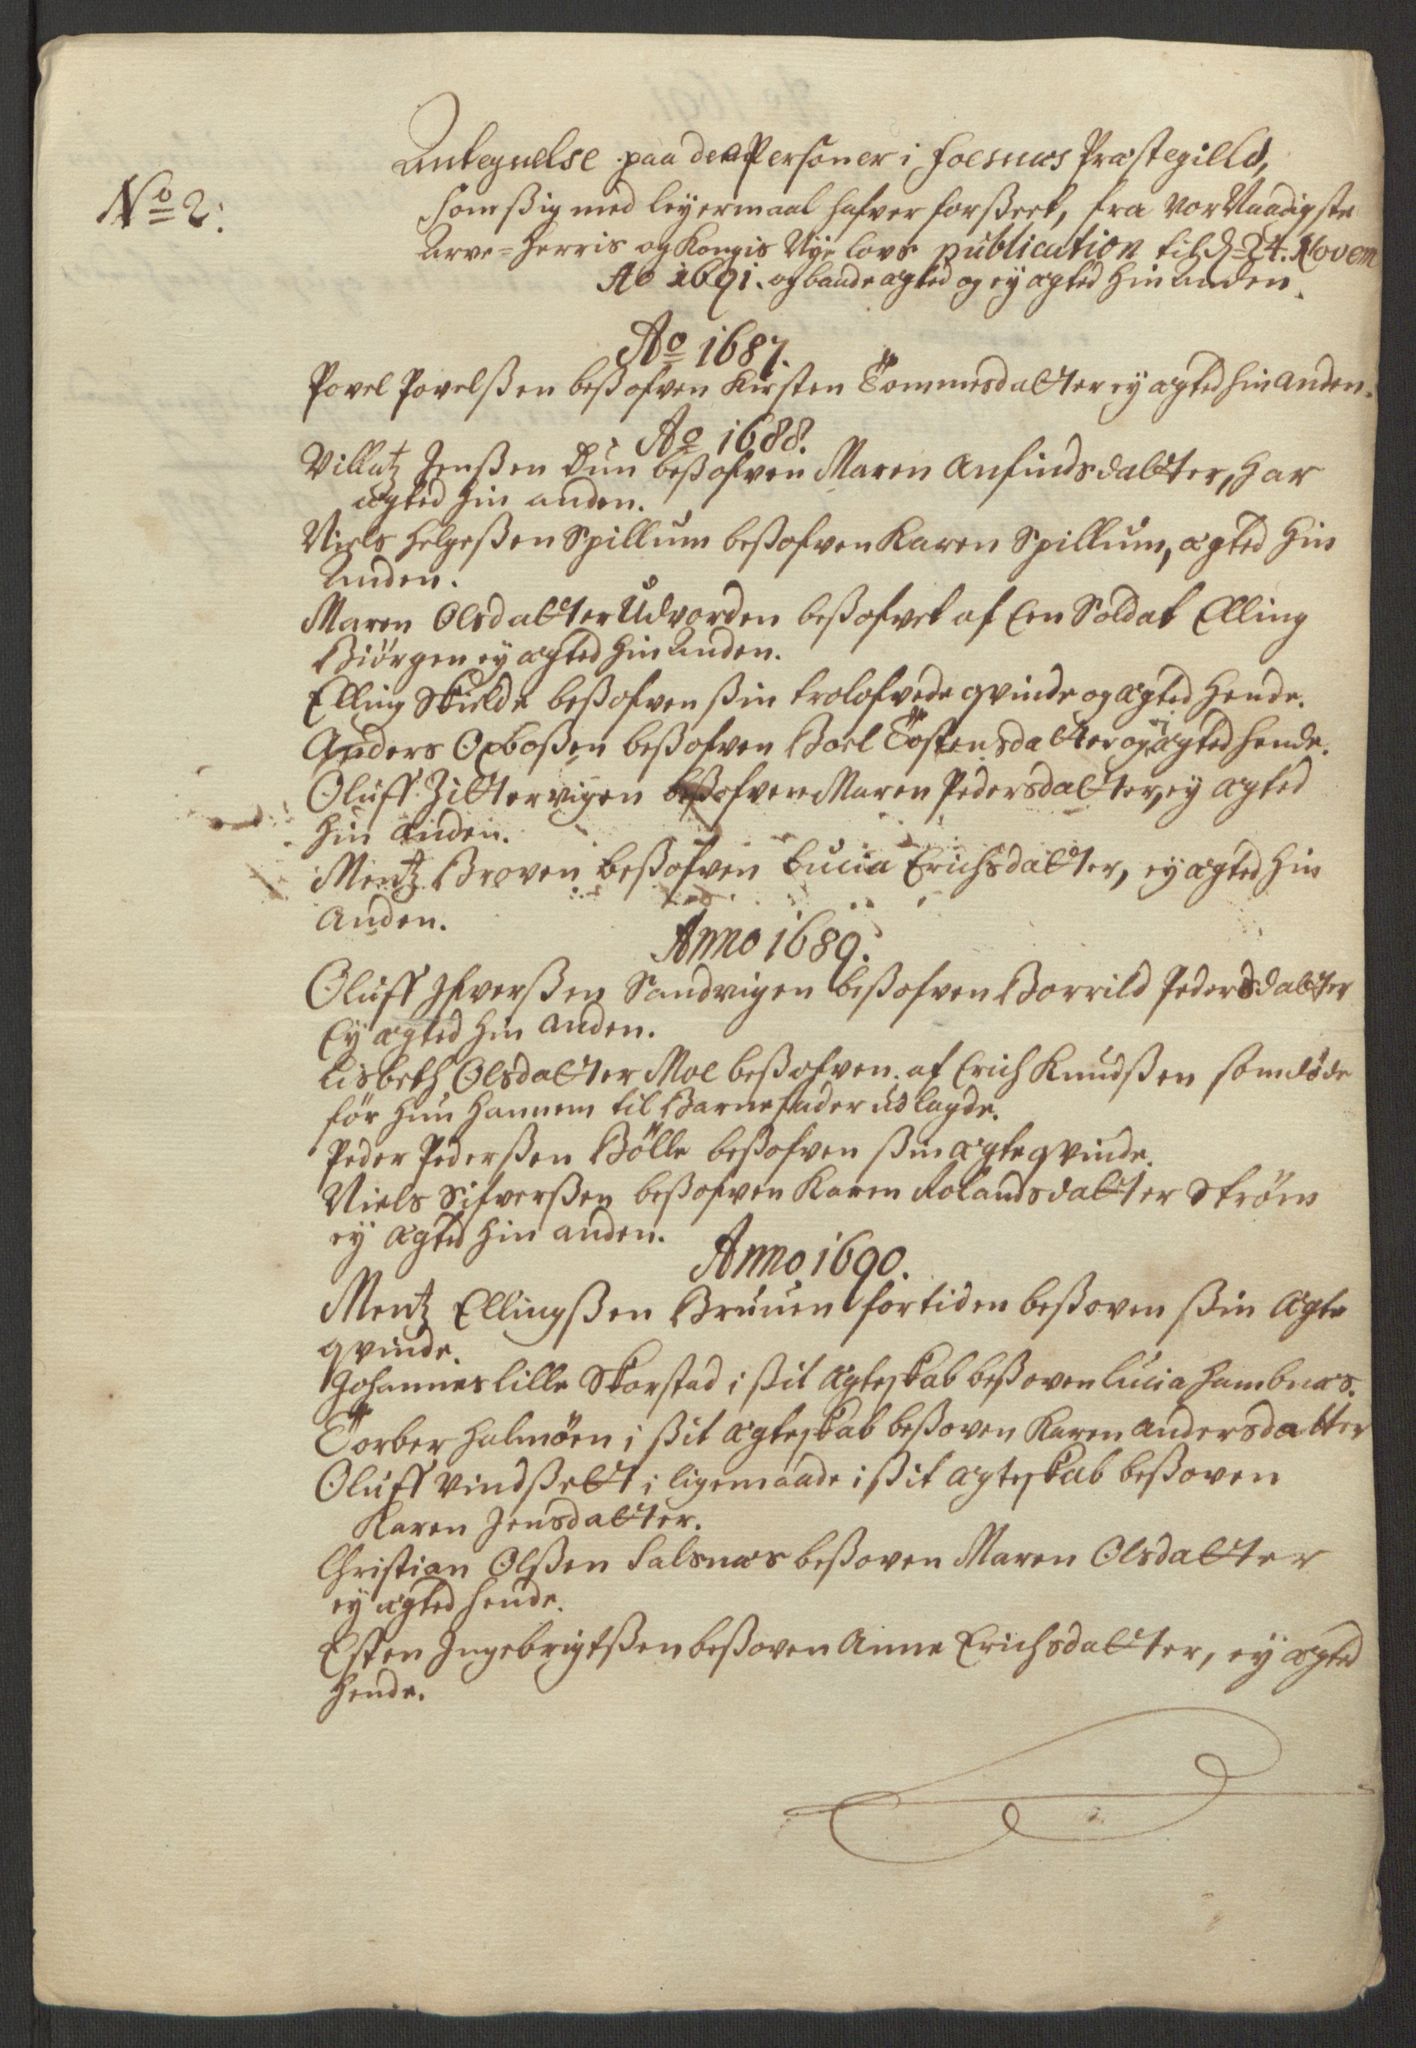 No 2:
Antegnelse paa de Personer i Foesnæs Præstegilld,
som ßig med leyermaal hafver forßeet, fra vor Naadigste
Arve=Herris og Kongis Nye lovs publication til d. 24. Novem
Ao 1691. og baade ægted og ey ægted hin anden.
Ao 1687.
Povel Povelßen beßofven Kirsten Tommesdatter ey ægted hin anden.
Ao 1688.
Villatz Jenßen Dun beßofven Maren Anfindsdatter, har
ægted hin anden.
Niels Helgeßen Spillum beßofven Karen Spillum, ægted hin
Anden.
Maren Olsdatter Udvorden beßofvet af Een Soldat Elling
Biörgen ey ægted hin Anden.
Elling Skielde beßofven ßin trolofvede qvinde og ægted hende.
Anders Oxboßen beßofven Boel Töstensdatter og ey ægted hende.
Oluff Zittervigen beßofven Maren Pedersdatter, ey ægted
hin anden.
Mentz Broven beßofven Lucia Erichsdatter, ey ægted hin
Anden.
Anno 1689.
Oluff Ifverßen Sandvigen beßofven Borrild Pedersdatter
Ey ægted hin anden.
Lisbeth Olsdatter Moe beßofven af Erich Knudßen som döde
för hun hannem til Barnefader udlagde.
Peder Pederßen Bölle beßofven ßin ægteqvinde.
Niels Sifverßen beßofven Karen Rolandsdatter Ström
ey ægted hin anden.
Anno 1690.
Mentz Ellingßen Bruuen fortiden beßoven ßin ægte
qvinde.
Johannes lille Skorstad i ßit ægteskab beßoven Lucia Hambnæs.
Torber Halmöen i ßit ægteskab beßoven Karen Andersdatter
Oluff Vindßett i ligemaade i ßit ægteskab beßoven
Karen Jensdatter.
Christian Olßen Salsnæs beßoven Maren Olsdatter
ey ægted hende.
Esten Ingebrigtßen beßoven Anne Erichsdatter, ey ægted
hende.